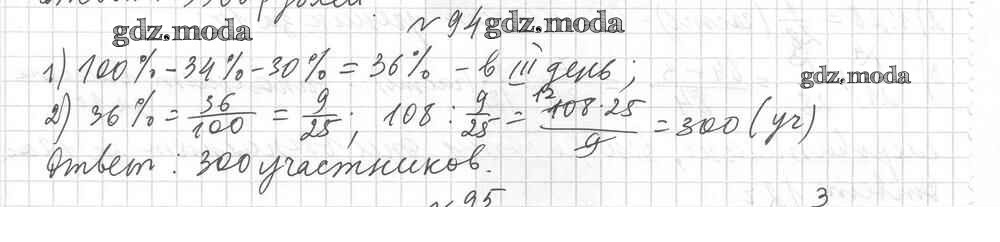 № 94
gdz.moda gdz.moda
1) 100% - 34% - 30% = 36% - в III день;
gdz.moda
2) 36% = 36/100 = 9/25; 108 : 9/25 = 12 108·25/9 = 300 (уч)
Ответ: 300 участников.
№ 95 3